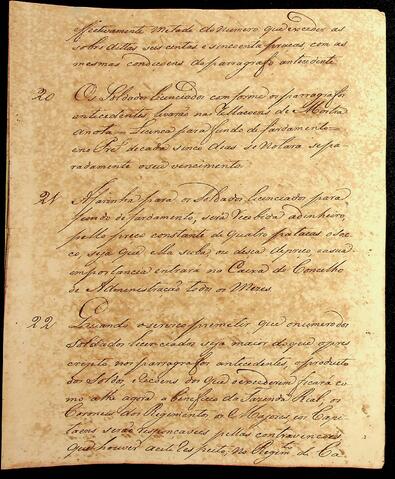 effectivamente Metade do Numero que exceder as
sobre dittas seis centas e sincoenta praças, com as
mesmas condicoens do parragrafo antecedente.
20 Os Soldados licenciados comforme os parragrafos
antecedentes, livrarão nas Rellacoens de Mostra
a nota = Licenca para fundo de fardamento =
e no Pret de cada sinco dias se Notara sepa
radamente o seu vencimento.
21 A farinha para os Soldados licenciados para
fundo de fardamento, será recebida a dinheiro,
pello preço constante de quatro patacas o sa-
co, seja que ella suba, ou desca de preço, e a sua
importancia entrará na Caixa do Concelho
de Administração todos os Mezes.
22 Quando o serviço premetir que o numero dos
Soldados licenciados seja maior do que o pres
cripto nos parragrafos antecedentes, o producto
dos Soldos, e Racoens dos que o excederem ficará co
mo athe agora a beneficio da Fazenda Real, os
Coroneis dos Regimentos, os Majores, e os Capi
taens serão responcaveis pellas contravencoens
que houver a este respeito, no Regim.to de Ca-